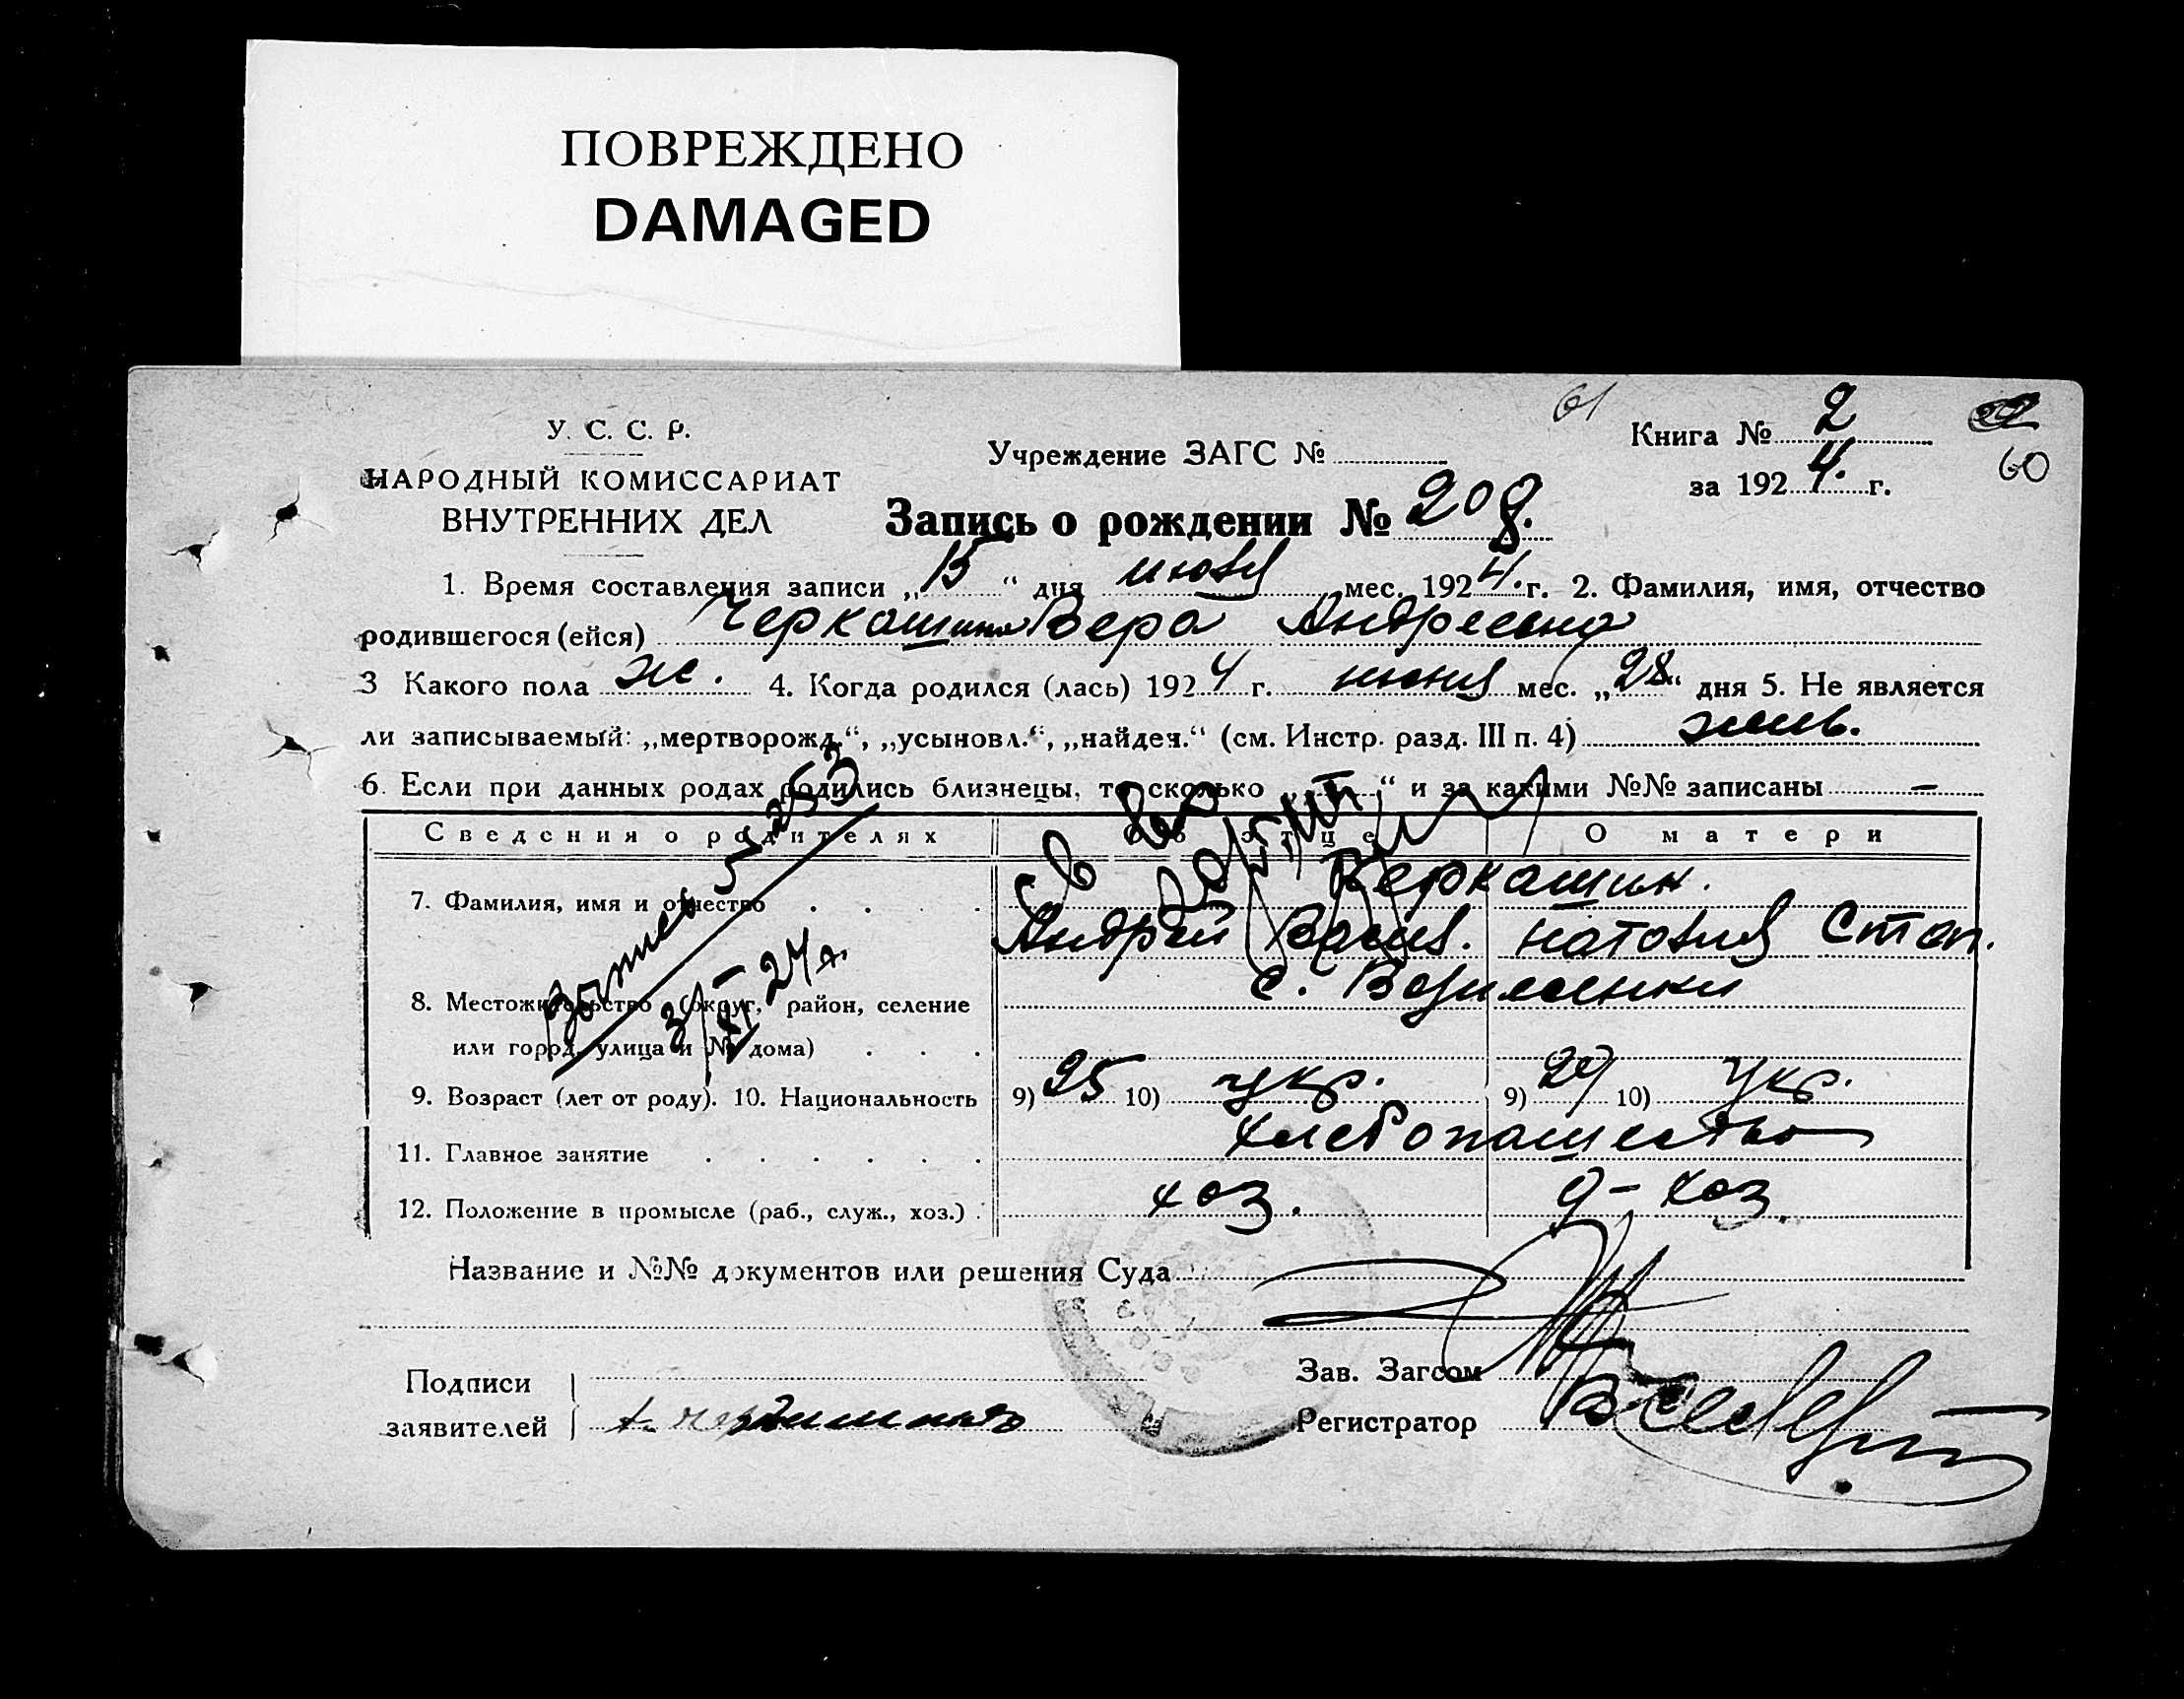 ПОВРЕЖДЕНО
DAMAGED
61
Книга № 2
У. С. С. Р.
Учреждение ЗАГС №
60
за 1924. г.
НАРОДНЫЙ КОМИССАРИАТ
ВНУТРЕННИХ ДЕЛ
Запись о рождении № 208.
1. Время составления записи „15“ дня июля мес. 1924. г. 2. Фамилия, имя, отчество
родившегося (ейся) Черкашина Вера Андреевна
3 Какого пола ж. 4. Когда родился (лась) 1924 г. июня мес. „28“ дня 5. Не является
ли записываемый: „мертворожд.“, „усыновл.“, „найден.“ (см. Инстр. разд. III п. 4) жив.
6. Если при данных родах родились близнецы, то сколько „ “ и за какими №№ записаны —
Сведения о родителях Об отце О матери
7. Фамилия, имя и отчество Черкашин.
Андрей Васил. Наталия Степ.
8. Местожительство (округ, район, селение
или город, улица и № дома)
9. Возраст (лет от роду). 10. Национальность 9) 25 10) укр. 9) 24 10) укр.
11. Главное занятие хлебопашество
12. Положение в промысле (раб., служ., хоз.) хоз. д-хоз.
Название и №№ документов или решения Суда
Подписи
заявителей
Зав. Загсом
Регистратор